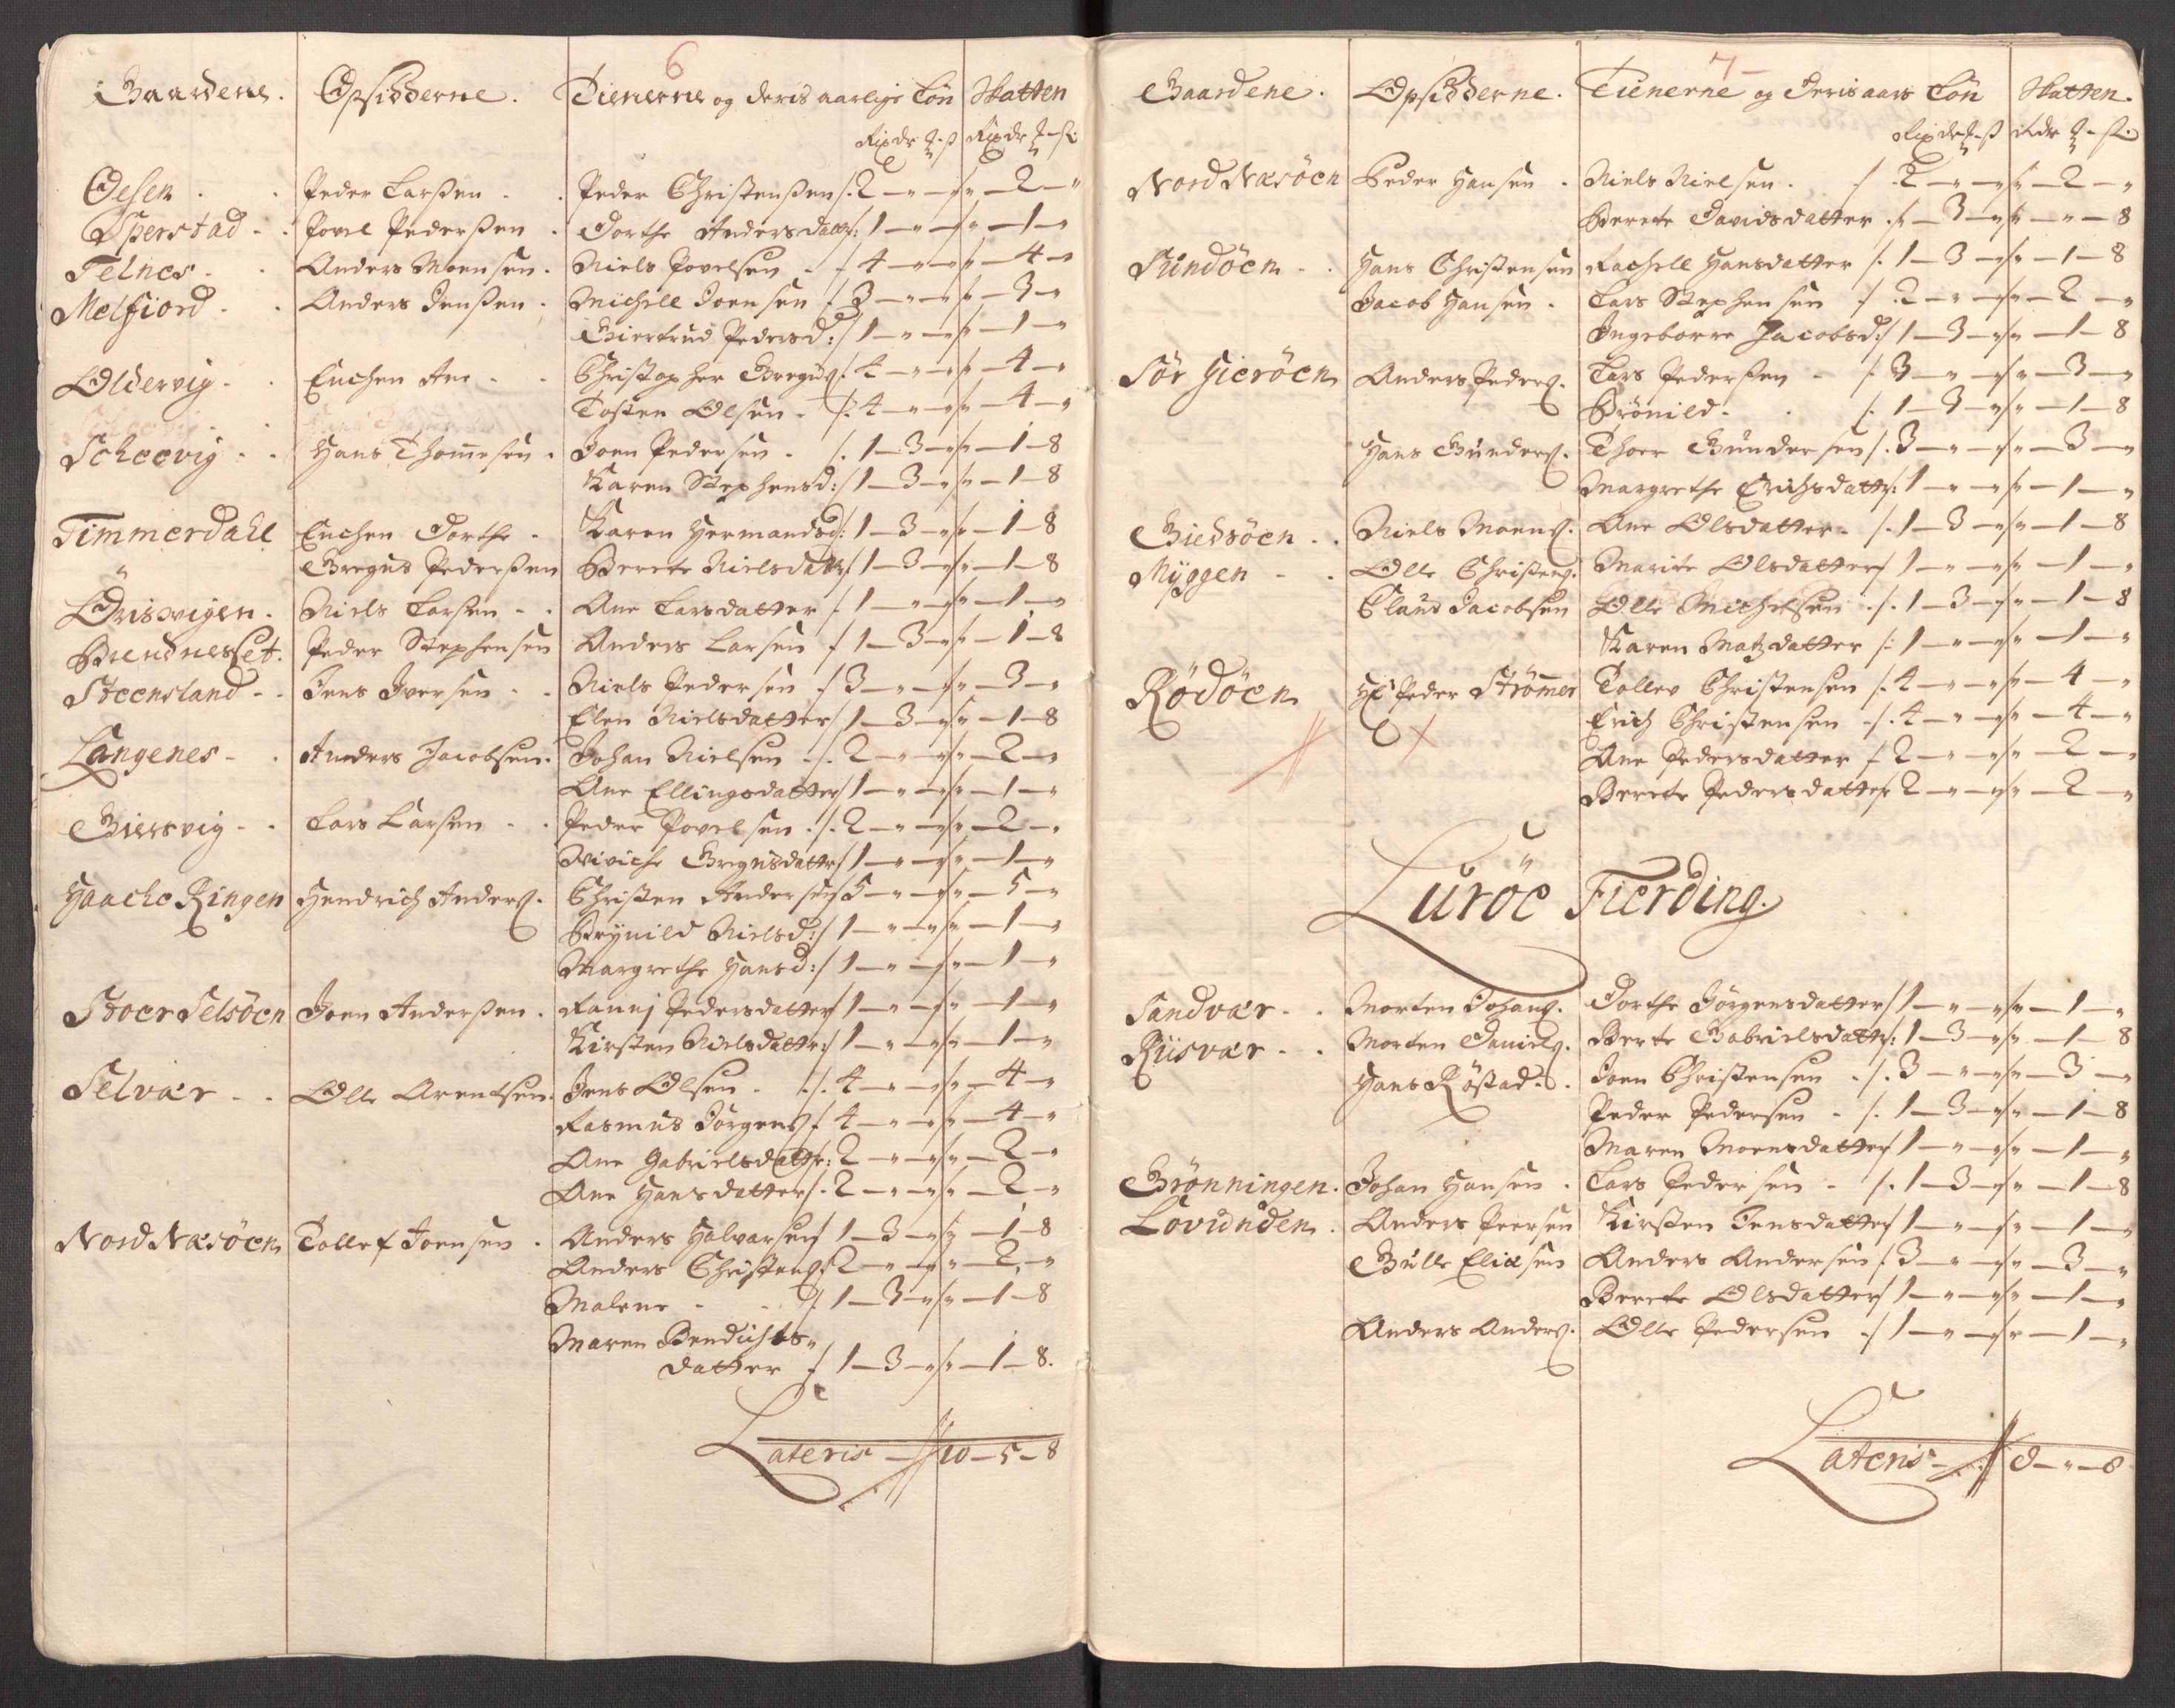 6
Gaardene. Opsidderne. Tienerne og deris aarlige Løn Skatten
Rixdr ₰ ß Rixdr ₰ ß
Oesen - - Peder Larssen - - Peder Christenssen /. 2 — " — " /" — 2 — "
Sperstad - - Povel Pederssen - Dorthe Andersdattr: 1 — " — " /" — 1 — "
Telnes - - Anders Monsen - Niels Povelsen - - 4 — " — " /" — 4 — "
Melfiord - - Anders Jenssen - Michell Joensen /. 3 — " — " /" — 3 — "
Giertrud Pedersd: / 1 — " — " /" — 1 — "
Oldervig - - Enchen Ane - - Christopher Greguss: 4 — " — " /" — 4 — "
Tosten Olsen - /. 4 — " — " /" — 4 — "
Scheevig - - Hans Thomesen - Joen Pedersen - /. 1 — 3 — " /" — 1 — 8
Karen Stephensd: / 1 — 3 — " /" — 1 — 8
Timmerdahl Enchen Dorthe - Karen Hermandsd: 1 — 3 — " /" — 1 — 8
Gregus Pederssen Berete Nielsdattr / 1 — 3 — " /" — 1 — 8
Ørisvigen - Niels Larsen - - Ane Larsdatter / 1 — " — " /" — 1 — "
BrendnesLet. Peder Stephensen Anders Larsen / 1 — 3 — " /" — 1 — 8
Steensland - - Jens Iversen - - Niels Pedersen / 3 — " — " /" — 3 — "
Elen Nielsdatter / 1 — 3 — " /" — 1 — 8
Langenes - - Anders Jacobsen. Johan Nielsen - /. 2 — " — " /" — 2 — "
Ane Ellingsdatter / 1 — " — " /" — 1 — "
Giersvig - - Lars Larsen - - Peder Povelsen - /. 2 — " — " /" — 2 — "
Viviche Gregusdattr / 1 — " — " /" — 1 — "
Haache Ringen Hendrich Anders. Christen Andersen / 5 — " — " /" — 5 — "
Brynild Nielsd: / 1 — " — " /" — 1 — "
Margrethe Hansd: / 1 — " — " /" — 1 — "
Stoer Selsöen Joen Anderssen. Fannj Pedersdatter / 1 — " — " /" — 1 — "
Kirsten Nielsdattr: / 1 — " — " /" — 1 — "
Selvær - - Olle Arentsen. Jens Olsen - - /. 4 — " — " /" — 4 — "
Rasmus Jörgens. 4 — " — " /" — 4 — "
Ane Gabrielsdattr: 2 — " — " /" — 2 — "
Ane Hansdatter /. 2 — " — " /" — 2 — "
Nord Næsöen Tollef Joensen - Anders Halvorsen / 1 — 3 — " /" — 1 — 8
Anders Christens: 2 — " — " /" — 2 — "
Malene - - /. 1 — 3 — " /" — 1 — 8
Maren Bendichts-
datter / 1 — 3 — " /" — 1 — 8.
Lateris — 10 — 5 — 8
7
Gaardene. Opsidderne. Tienerne og deris aars Løn Skatten.
Rixdr ₰ ß Rdr ₰ ß
Nord Næsöen Peder Hansen - Niels Nielsen - / 2 — " — " /" — 2 — "
Berete Davidsdatter / " — 3 — " /" — " — 8
Rindöen - - Hans Christensen Rachell Hansdatter /. 1 — 3 — " /" — 1 — 8
Jacob Hansen - Lars Stephensen / 2 — " — " /" — 2 — "
Ingeborre Jacobsd: / 1 — 3 — " /" — 1 — 8
Sör Gieröen Anders Peders. Lars Pederssen - /. 3 — " — " /" — 3 — "
Brönild - - /. 1 — 3 — " /" — 1 — 8
Hans Gunders. Thoer Gundersen /. 3 — " — " /" — 3 — "
Margrethe Erichsdattr: 1 — " — " /" — 1 — "
Giedsöen - - Niels Moens. Ane Olsdatter - /. 1 — 3 — " /" — 1 — 8
Myggen - - Olle Christens. Marite Olsdatter / 1 — " — " /" — 1 — "
Claus Jacobsen Olle Michelsen - /. 1 — 3 — " /" — 1 — 8
Karen Matzdatter /. 1 — " — " /" — 1 — "
Rødöen Hr Peder Strömer Tollev Christensen /. 4 — " — " /" — 4 — "
Erich Christensen - /. 4 — " — " /" — 4 — "
Ane Pedersdatter / 2 — " — " /" — 2 — "
Berete Pedersdatter 2 — " — " /" — 2 — "
Luröe Fierding.
Sandvær - - Morten Johans. Dorthe Jörgensdatter / 1 — " — " /" — 1 — "
Riisvær - - Morten Daniels. Berte Gabrielsdattr: 1 — 3 — " /" — 1 — 8
Hans Røstad - - Joen Christensen - /. 3 — " — " /" — 3 — "
Peder Pedersen - /. 1 — 3 — " /" — 1 — 8
Maren Moensdatter / 1 — " — " /" — 1 — "
Grønningen. Johan Hansen - Lars Pedersen - /. 1 — 3 — " /" — 1 — 8
Lovunden. Anders Peersen Kirsten Jensdatter / 1 — " — " /" — 1 — "
Gulle Eliasen Anders Andersen /. 3 — " — " /" — 3 — "
Berete Olsdatter / 1 — " — " /" — 1 — "
Anders Anders. Olle Pedersen - / 1 — " — " /" — 1 — "
Lateris — 8 — " — 8